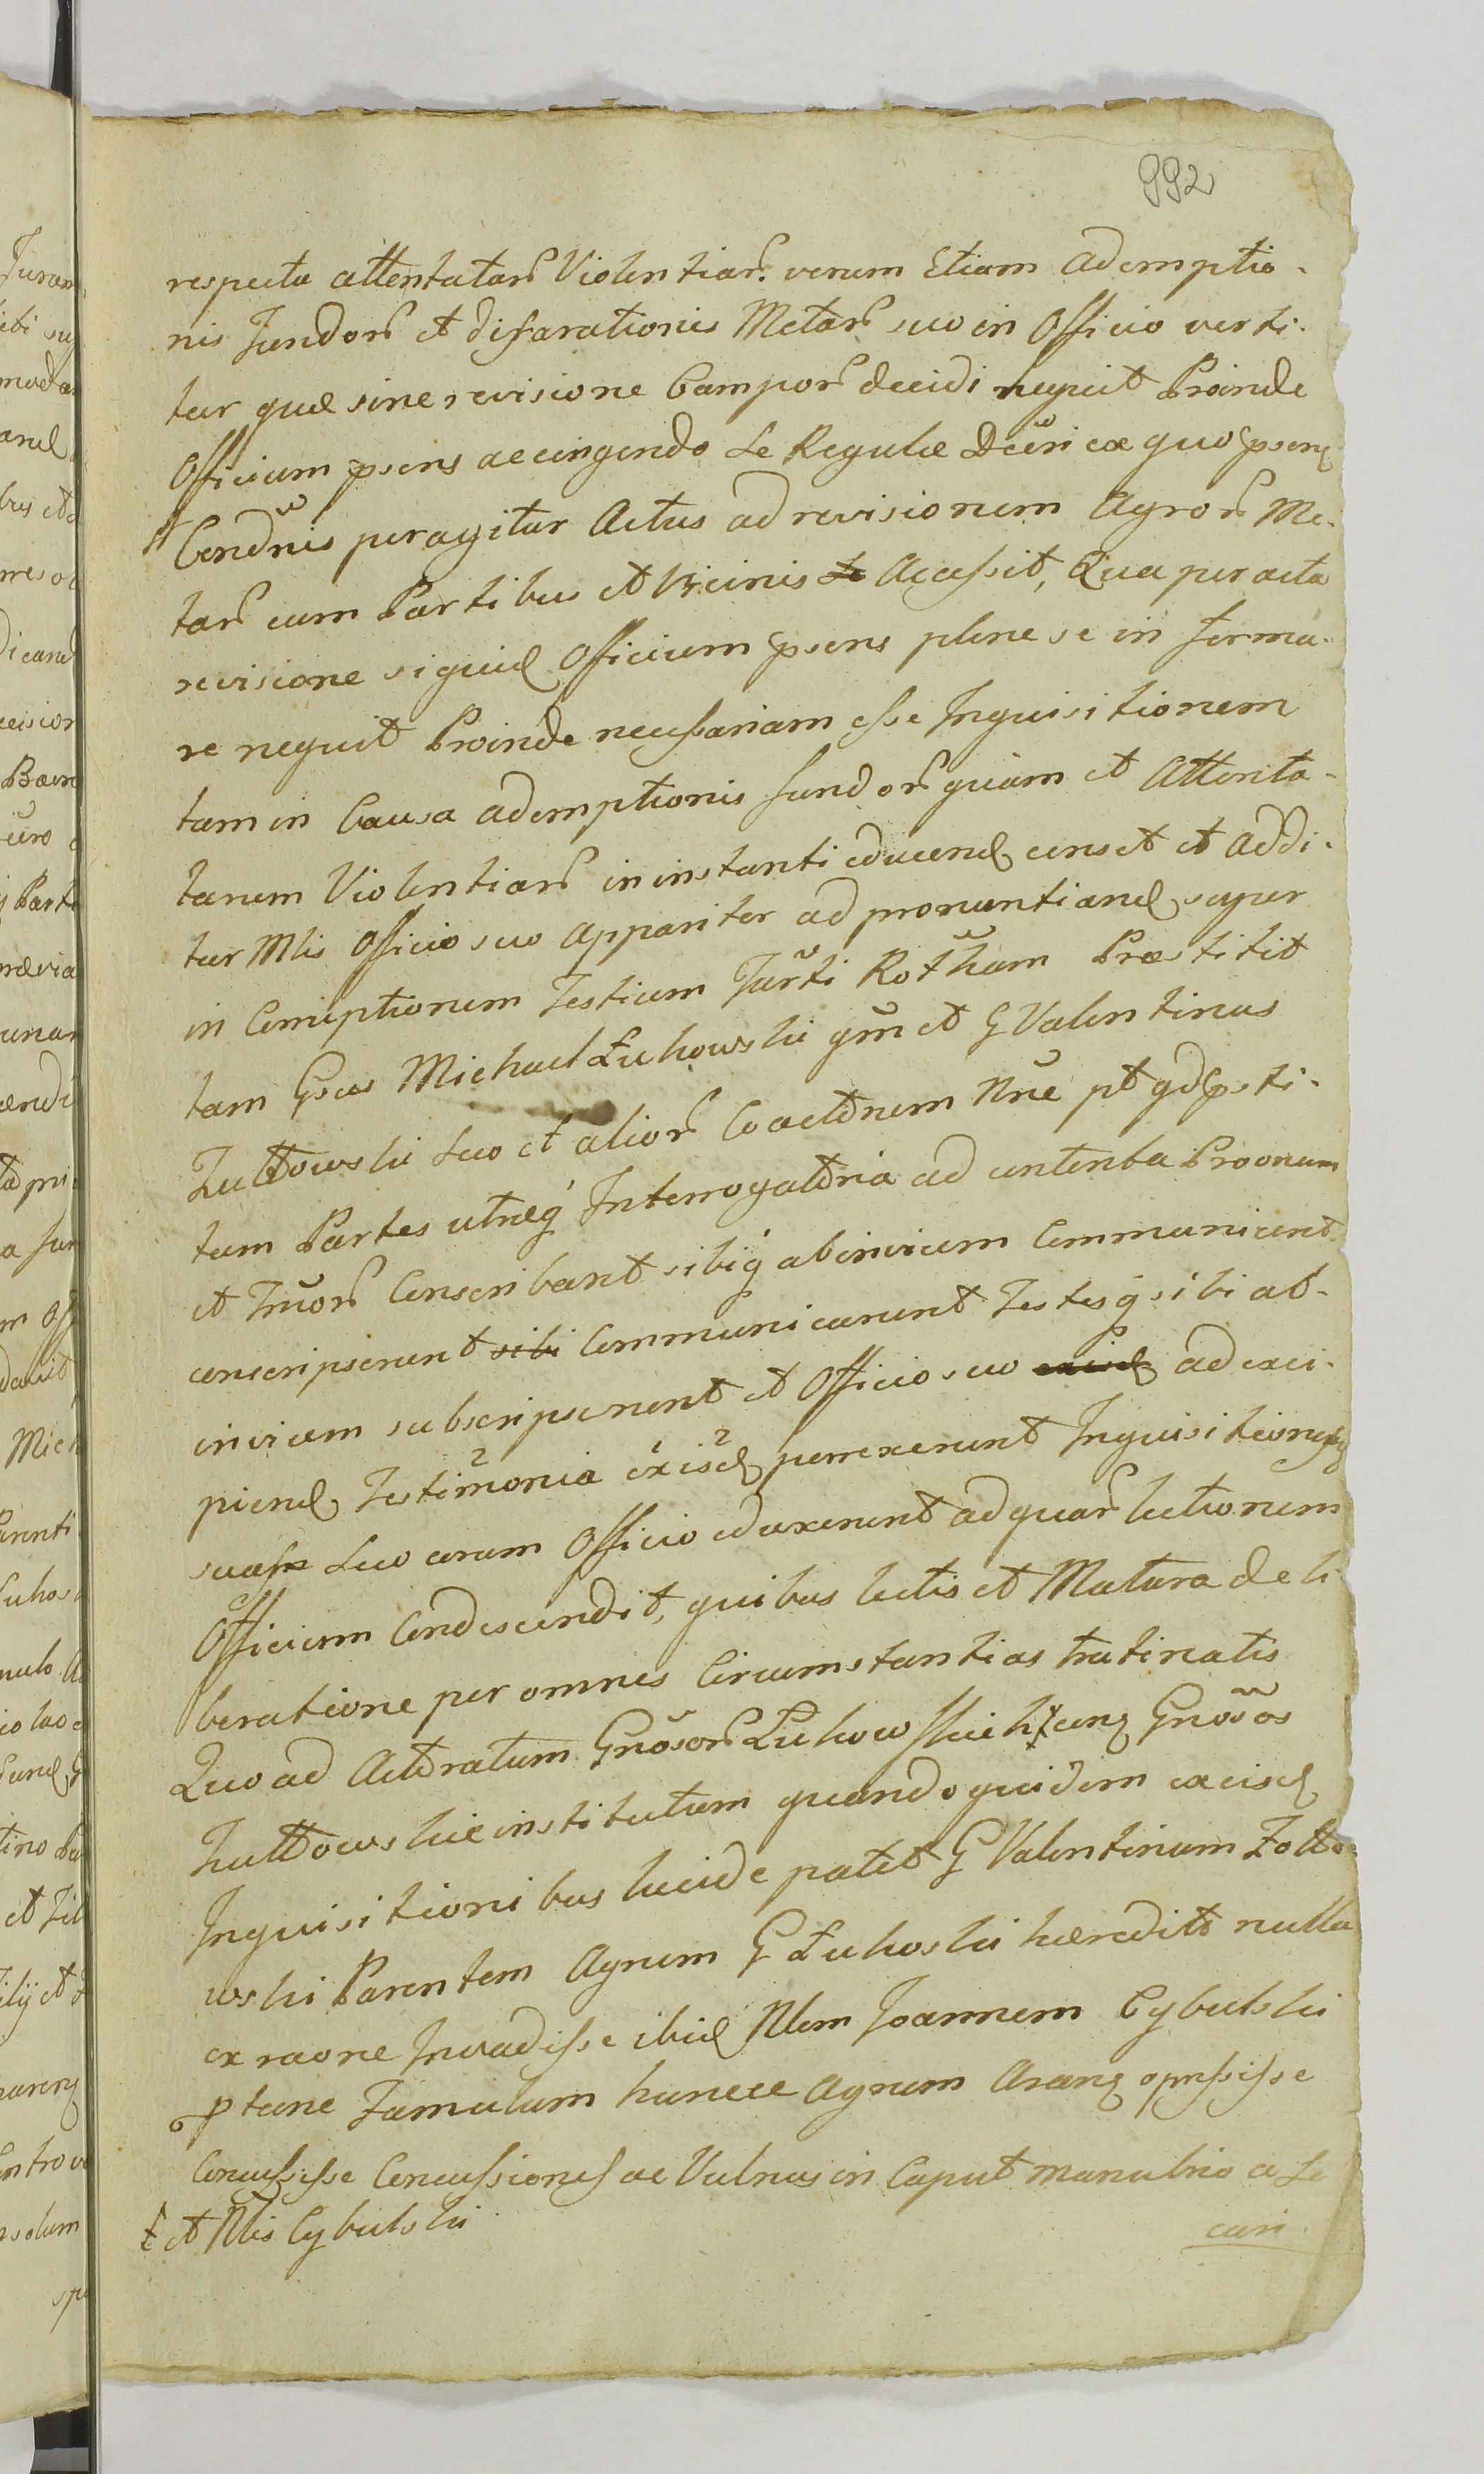 992
respectu attentatar̃ Violentiar̃. verum Etiam Ademptio-
nis Fundor̃ et disparationis Metar̃ suo in Officio verti-
tur quæ sine revisione Campor̃ decidi nequit Proinde
Officium p̃sens accingendo se Regulæ Decr̃i ex quo p̃sens
Condn̄is peragitur Actus ad revisionem Agror̃ Me-
tar̃ cum Partibus et Vicinis Se Acessit, Qua peracta
revisione siquid Officium p̃sens plene se in forma-
re nequit Proinde necessariam esse Inquisitionem
tam in Causa ademptionis fundor̃ quam et Attenta-
tarum Violentiar̃ in instanti educend censet et addi-
tur Mlis Officio suo Appariter ad pronuntiand super
in Conniptionem Testium Jur̃ti Roth̃am Præstitit
tam Gsus Michael Łuhowski qm̄ et G Valentinus
Zułtowski suo et alior̃ Coactõnem Nr̃e pt qd p̃sti-
tum Partes utræq Interrogatõria ad contenta Proonum
et Tr̃uor̃ Conscribant sibiq abinvicem Communicent
conscripserunt sibi Communicarunt Testesq sibi ab-
invicem subscripserunt et Officio suo ad exci-
piend Testimonia ex iisd perrexerunt Inquisitionesq
suas suo coram Officio eduxerunt ad quar̃ lectionem
Officium Condescendit, quibus lectis et Matura deli
beratione per omnes Circumstantias trutinatis
Quo ad Actõratum Gnõsor̃ Łuhowskich cung Gnõsos
Zułtowskie institutum quandoquidem ex eisd
Inquisitionibus lucide patet G Valentinum Żołto-
wski Parentem Agrum G Łuhoski hæredit̃ nulla
ex raone Invadisse ibid Nlem Joannem Cybulski
p̃ tunc Famulum huncce Agrum Arang opressisse
Concussisse Concussiones ac Vulnus in Caput manubrio a se
et Nlis Cybulski
curi.